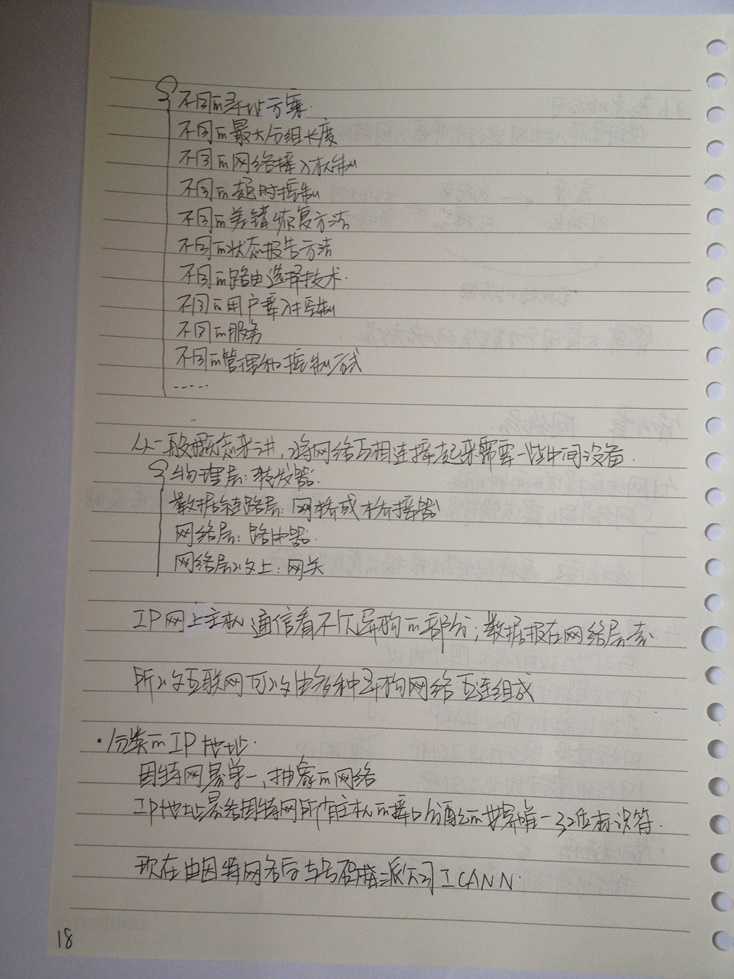 不同的寻址方案.
不同的最大分组长度
不同的网络接入机制
不同的超时控制
不同的差错恢复方法
不同的状态报告方法
不同的路由选择技术.
不同的用户接入控制
不同的服务
不同的管理和控制方式
.....
从一般概念来讲,将网络互相连接起来需要一些中间设备.
物理层:转发器.
数据链路层:网桥或桥接器
网络层:路由器.
网络层以上:网关
IP网上主机通信看不见异构的部分;数据报在网络层
所以互联网可以由多种异构网络互连组成
·分类的IP地址.
因特网是单一、抽象的网络
IP地址是给因特网所有主机的接口分配的世界唯一32位标识符.
现在由因特网名字与号码指派公司ICANN.
18